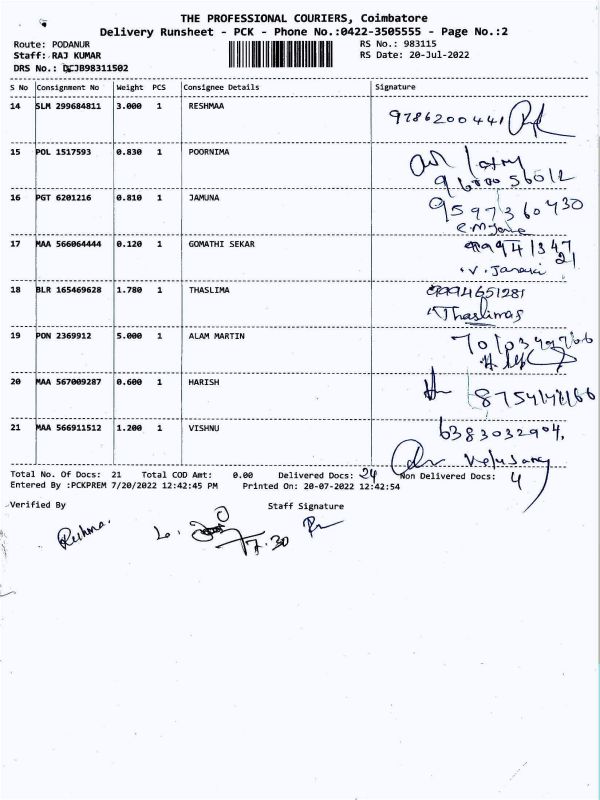 THE PROFESSIONAL COURIERS, Coimbatore
Delivery Runsheet - PCK - Phone No.:0422-3505555 - Page No.:2
Route: PODANUR
RS No.: 983115
Staff: RAJ KUMAR
RS Date: 20-Jul-2022
DRS No.: DCJB98311502
S No Consignment No Weight PCS Consignee Details Signature
14 SLM 299684811 3.000 1 RESHMAA
9786200441
15 POL 1517593 0.830 1 POORNIMA
16 PGT 6201216 0.810 1 JAMUNA
9597360430
17 MAA 566064444 0.120 1 GOMATHI SEKAR
V. Janaki
18 BLR 165469628 1.780 1 THASLIMA
9994651281
Thaslimas
19 PON 2369912 5.000 1 ALAM MARTIN
20 MAA 567009287 0.600 1 HARISH
21 MAA 566911512 1.200 1 VISHNU
6383032904.
Total No. Of Docs: 21 Total COD Amt: 0.00 Delivered Docs: 24 Non Delivered Docs: 4
Entered By :PCKPREM 7/20/2022 12:42:45 PM Printed On: 20-07-2022 12:42:54
Verified By Staff Signature
17.30